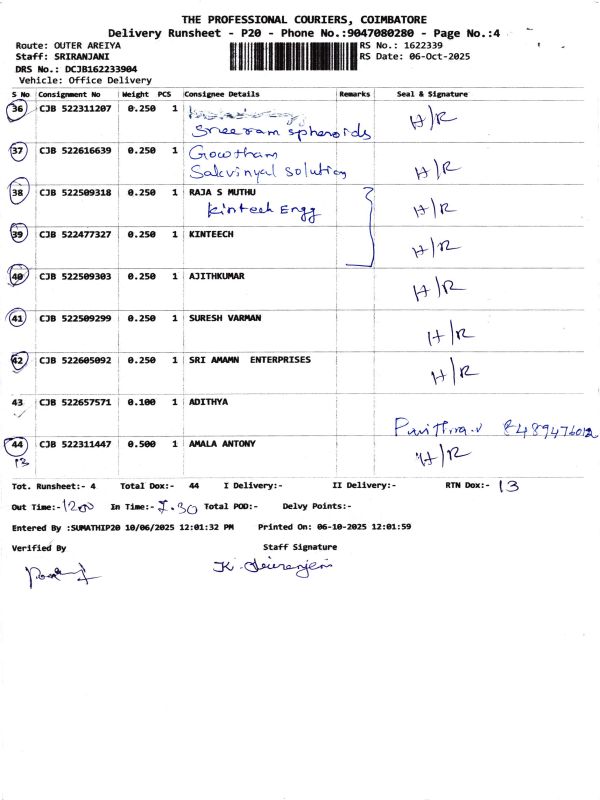 THE PROFESSIONAL COURIERS, COIMBATORE
Delivery Runsheet - P20 - Phone No.:9047080280 - Page No.:4
Route: OUTER AREIYA RS No.: 1622339
Staff: SRIRANJANI RS Date: 06-Oct-2025
DRS No.: DCJB162233904
Vehicle: Office Delivery
S No Consignment No Weight PCS Consignee Details Remarks Seal & Signature
36 CJB 522311207 0.250 1 H/R
Sreeram spheroids
37 CJB 522616639 0.250 1 Gowtham
Sakvinyal Solution H/R
38 CJB 522509318 0.250 1 RAJA S MUTHU H/R
Kintech Engg
39 CJB 522477327 0.250 1 KINTEECH H/R
40 CJB 522509303 0.250 1 AJITHKUMAR H/R
41 CJB 522509299 0.250 1 SURESH VARMAN H/R
42 CJB 522605092 0.250 1 SRI AMAMN ENTERPRISES H/R
43 CJB 522657571 0.100 1 ADITHYA
8489476012
44 CJB 522311447 0.500 1 AMALA ANTONY H/R
13
Tot. Runsheet:- 4 Total Dox:- 44 I Delivery:- II Delivery:- RTN Dox:- 13
Out Time:- 1200 In Time:- 7.30 Total POD:- Delvy Points:-
Entered By :SUMATHIP20 10/06/2025 12:01:32 PM Printed On: 06-10-2025 12:01:59
Verified By Staff Signature